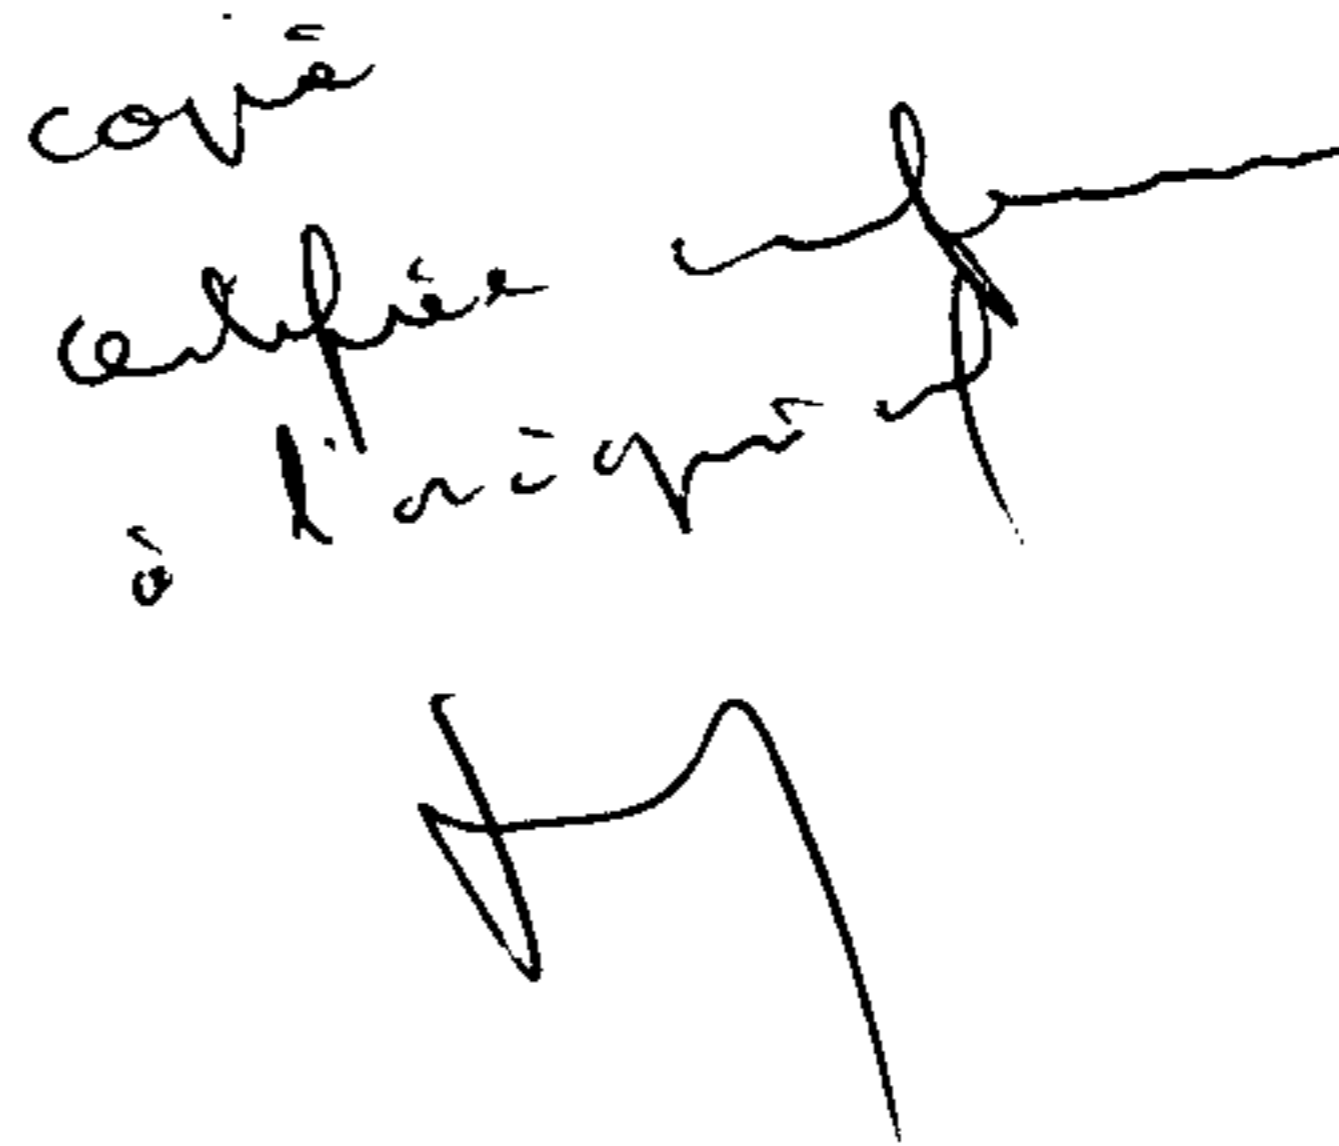 copie
certifiée conforme
à l'original